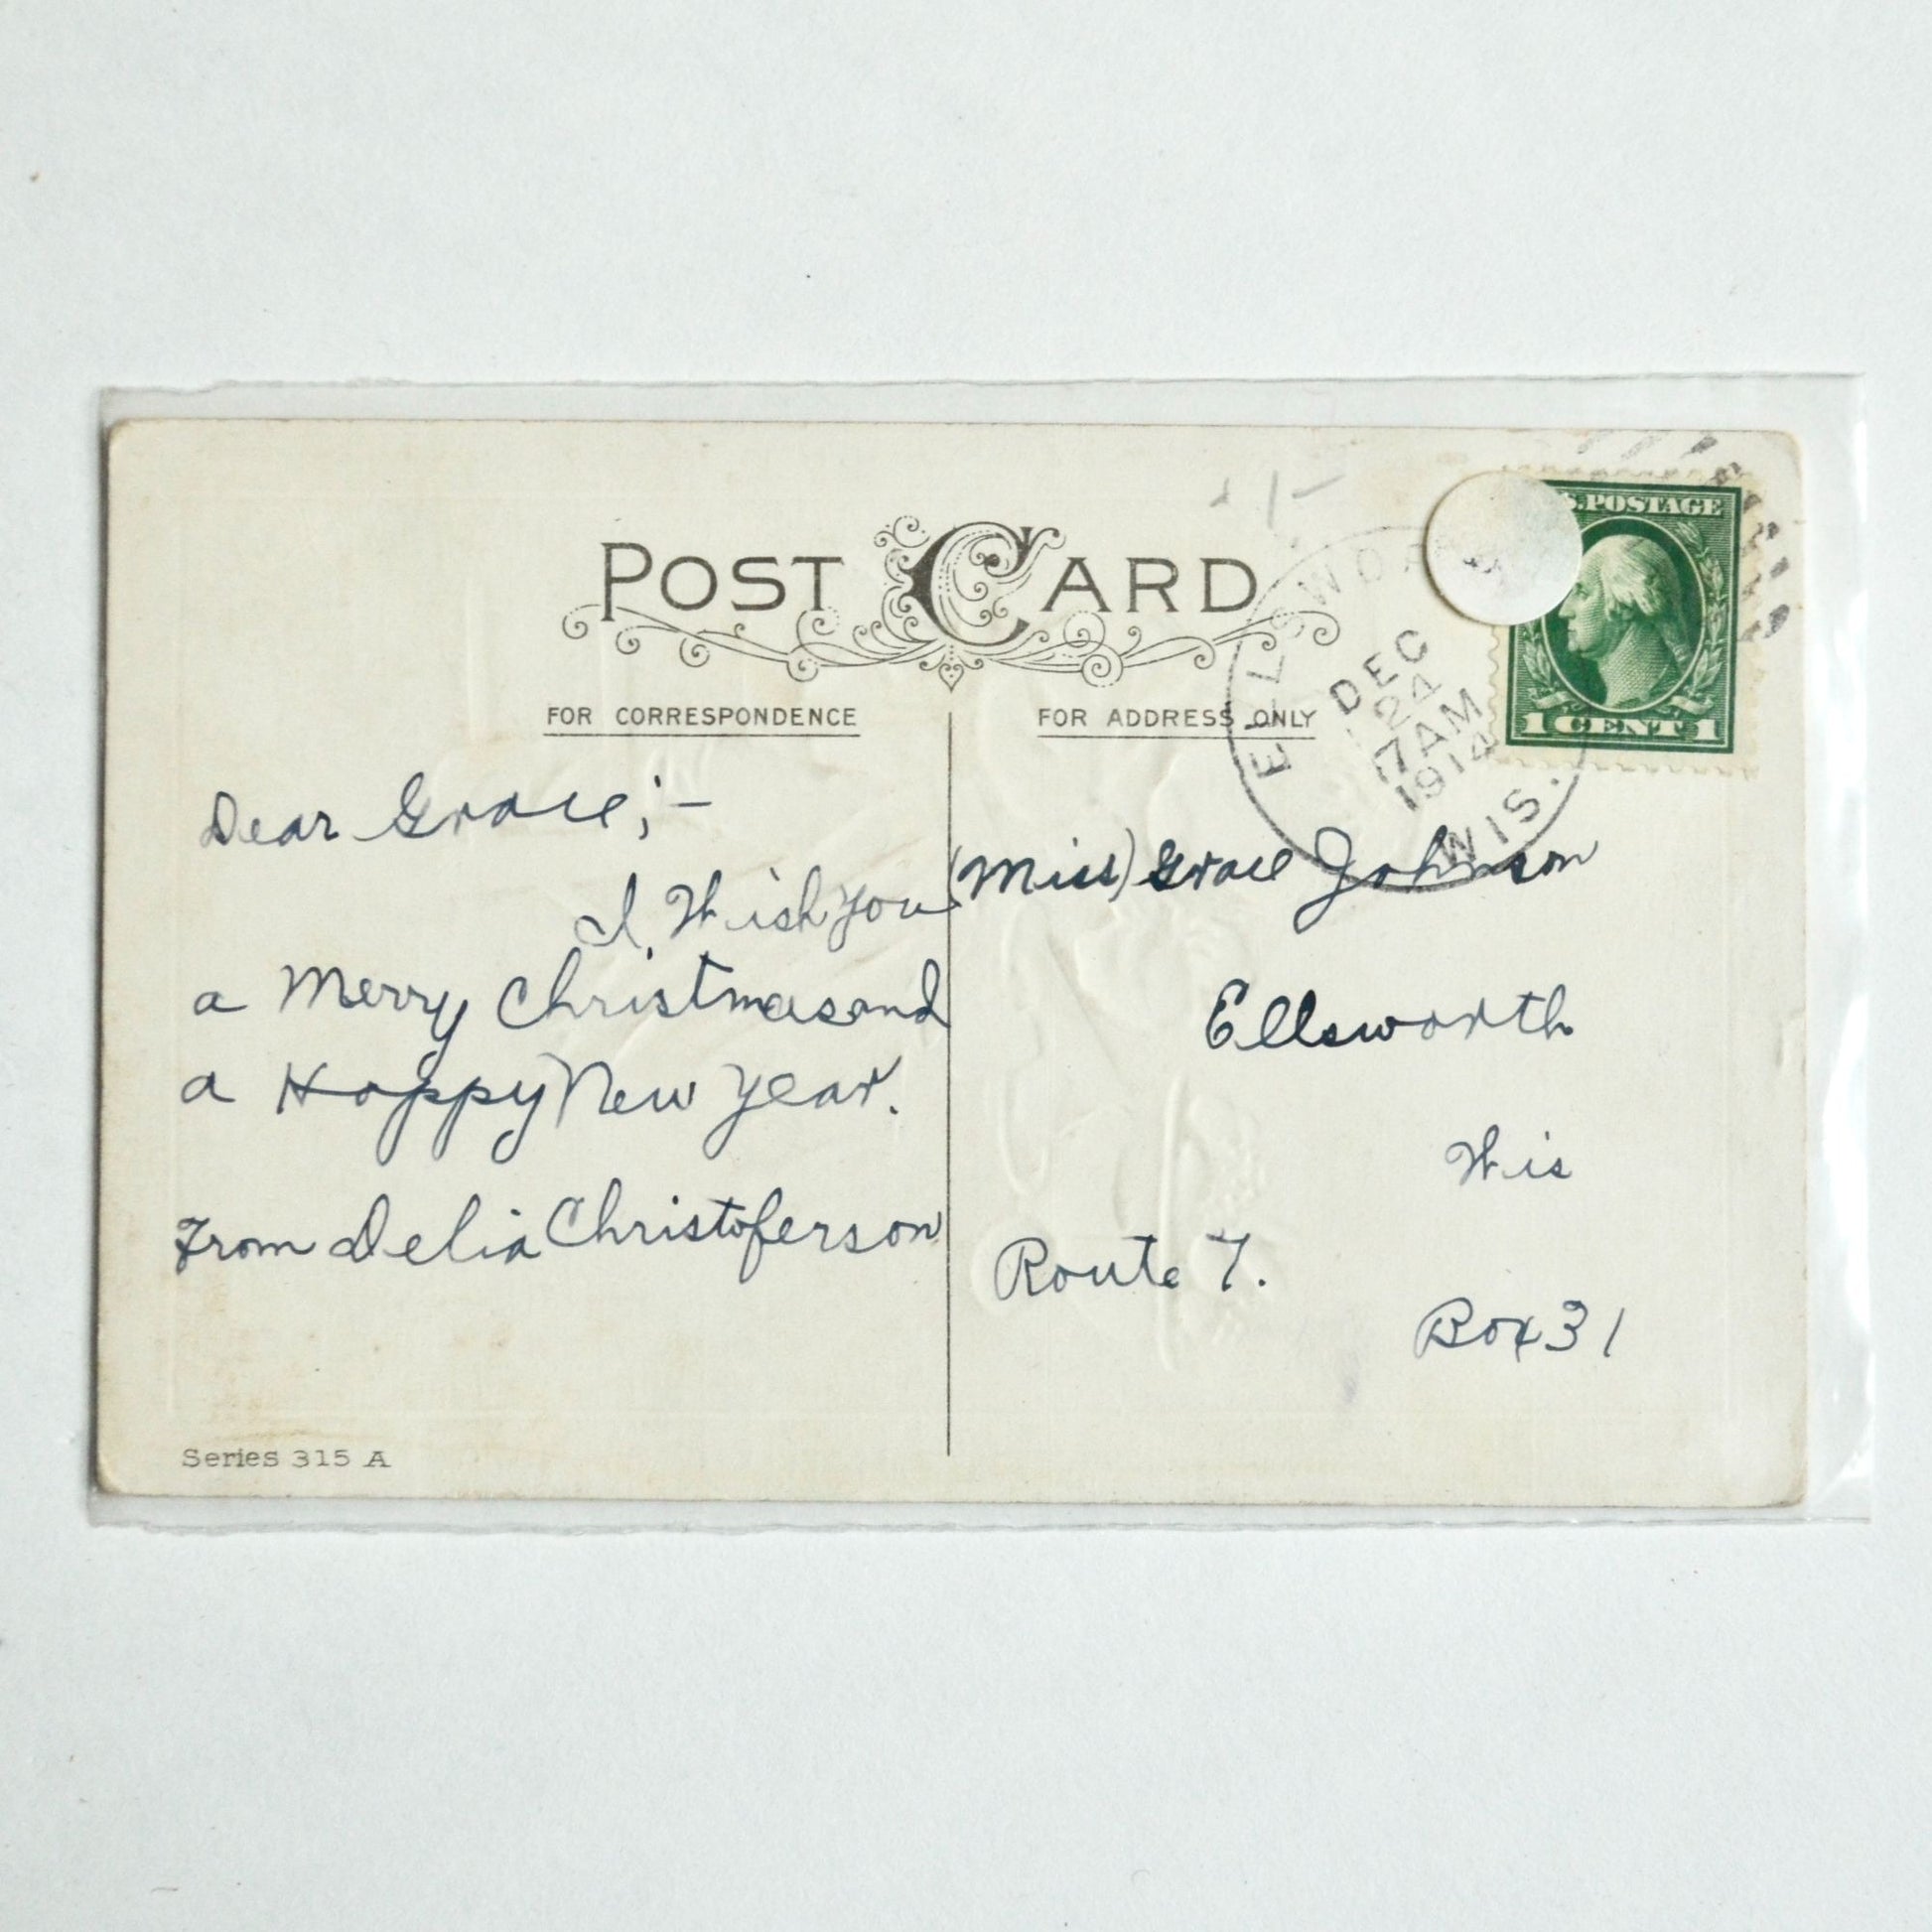 POST CARD
FOR CORRESPONDENCE
FOR ADDRESS ONLY
ELLSWOR
DEC
24
7 AM
1914
WIS.
S. POSTAGE
1 CENT 1
Dear Grace;-
I Wish you
a Merry Christmas and
a Happy New Year.
From Delia Christoferson
(Miss) Grace Johnson
Ellsworth
Wis
Route 7.
Box 31
Series 315 A